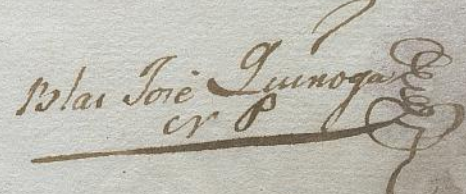 Blas José Quiroga